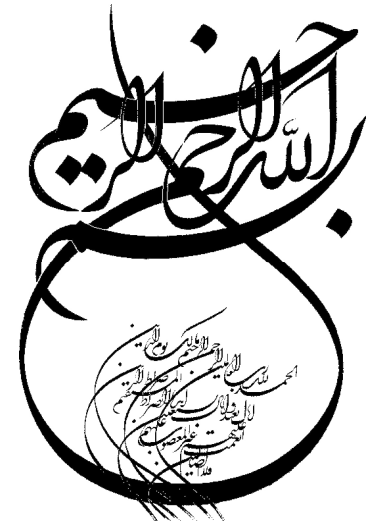 بسم الله الرحمن الرحيم
الحمد لله رب العالمين الرحمن الرحيم مالك يوم الدين
اهدنا الصراط المستقيم
صراط الذين انعمت عليهم غير المغضوب عليهم
ولا الضالين